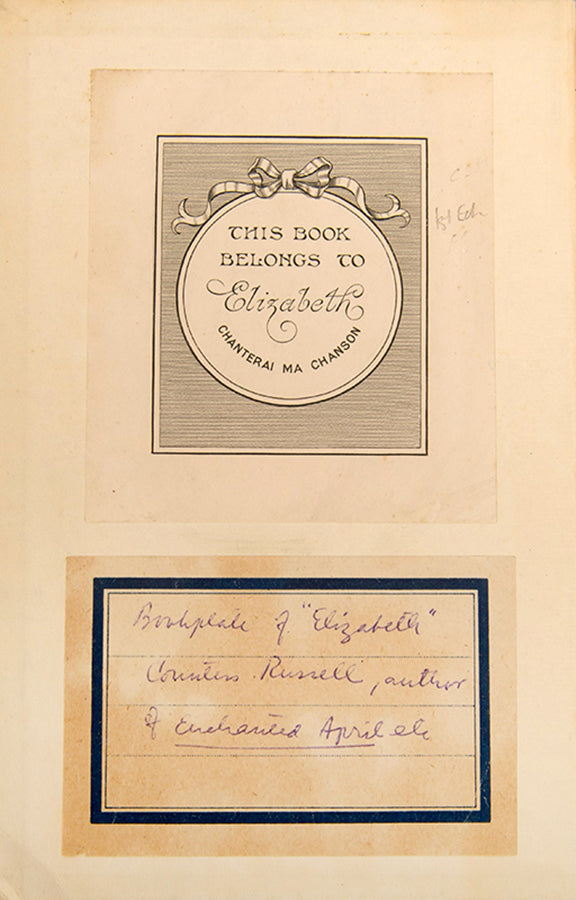 THIS BOOK
BELONGS TO
Elizabeth
CHANTERAI MA CHANSON
1st Edn
Bookplate of "Elizabeth"
Countess Russell, author
of Enchanted April etc